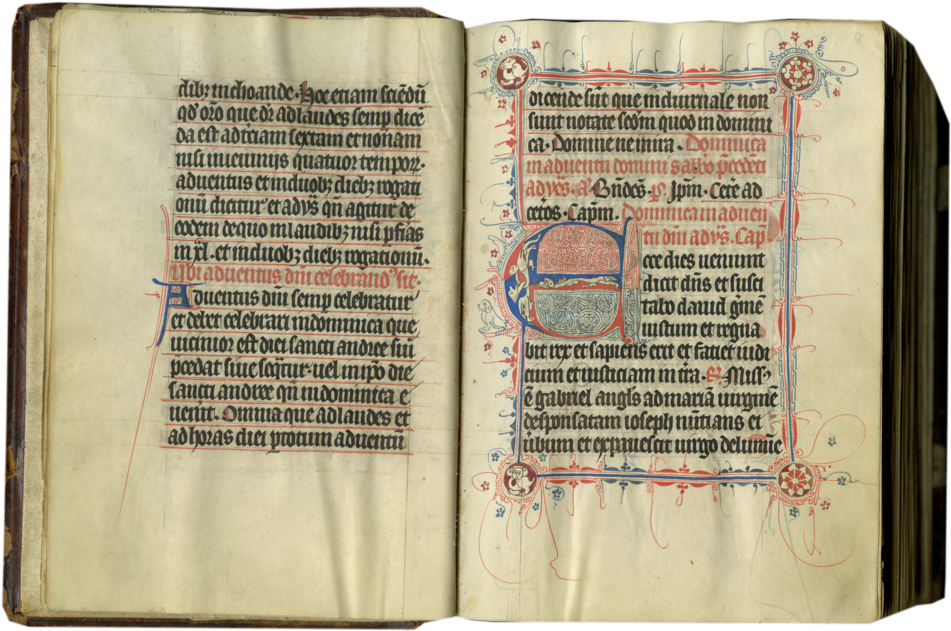 dibꝫ inchoande. Hoc etiam sciēdū
qđ oro que dr̄ ad laudes semp dice
da est ad t̾ciam sextam et nonam
nisi in ieiunijs quatuor tempoꝝ.
aduentus et in duobꝫ diebꝫ rogati
onū dicitur et ad vs̄ qn̄ agitur de
eodem de quo in laudibꝫ nisi p fīas
in xl. et in duobꝫ diebꝫ rogationū.
Ubi aduentus dn̄i celebrand⁹ sit.
Aduentus dn̄i semp celebratur
et debet celebrari in dominica que
uicinior est diei sancti andree siu
p̄cedat siue seq̄tur. uel in ip̄o die
sancti andree qn̄ in dominica e
uenit. Omnia que ad laudes et
ad horas diei p̱totum aduentū
dicende sūt que in diurnale non
sunt notate scd̄m quod in domini
ca. Domine ne in ira. Dominica
in aduentu domini sabb̄o p̄cedēti
ad vēs. a͞ Bn̄dcs̄. p̄s. Ip̄m. Cete ad
ceteros. Capm̄. Dominica in aduen
tu dn̄i ad vs̄. Cap̄
Ecce dies ueniunt
dicit dn̄s et susci
tabo dauid gm̄e
iustum et regna
bit rex et sapiens erit et faciet iudi
cium et iusticiam in t̾ra. ℟. Miss⁹
ē gabriel angl̄s ad mariā uirginē
desponsatam ioseph nūtians ei
ūbum et expauescit uirgo de lumīe